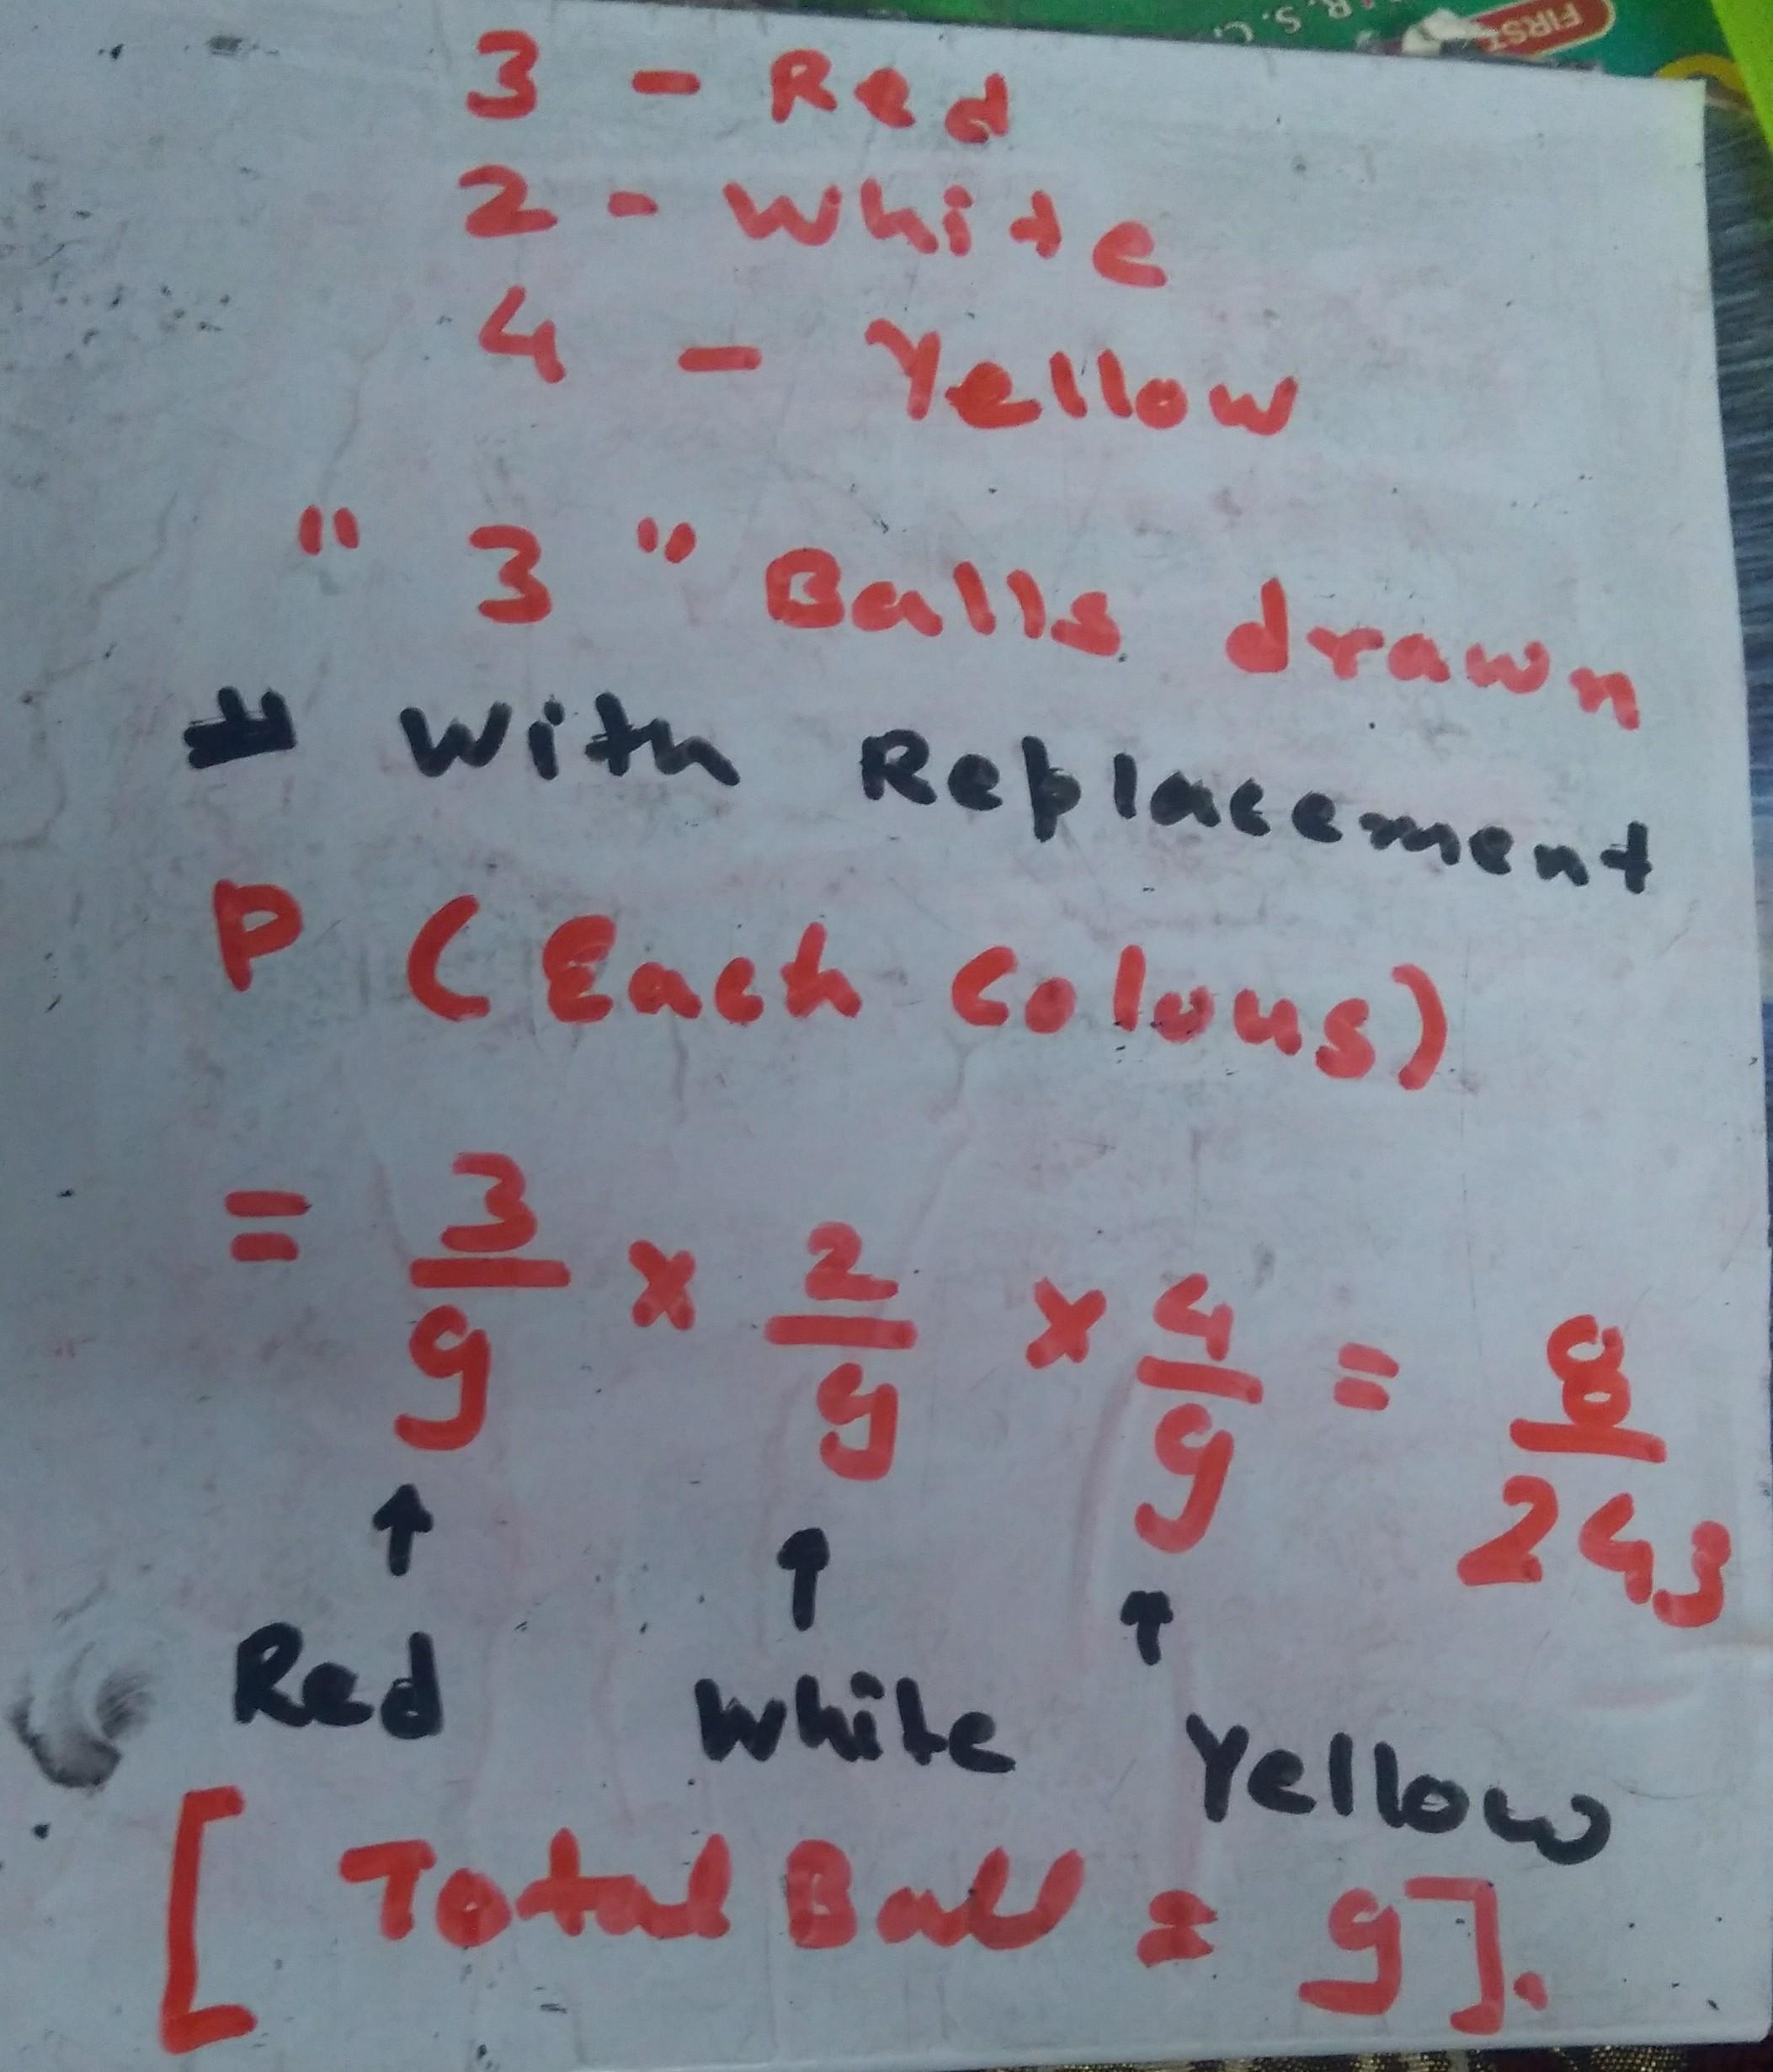 R. S. C.
FIRST
3 - Red
2 - White
4 - Yellow
" 3 " Balls drawn
# With Replacement
P (Each Colous)
= 3/9 x 2/9 x 4/9 = 8/243
↑ ↑ ↑
Red White Yellow
[Total Ball = 9].